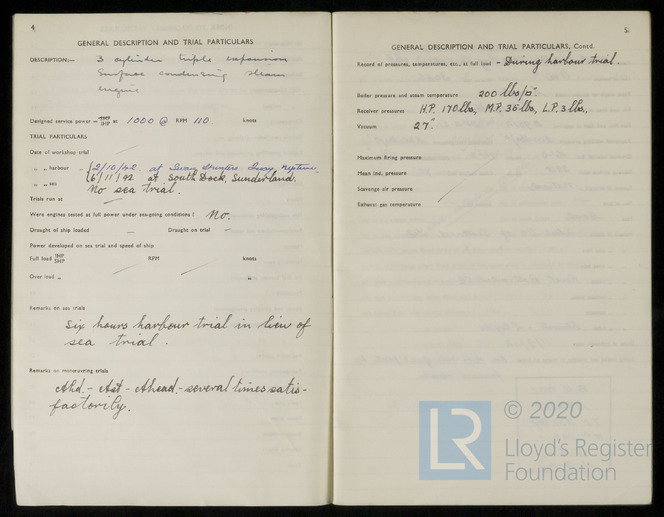 4.
GENERAL DESCRIPTION AND TRIAL PARTICULARS
DESCRIPTION:— 3 cylinder triple expansion
Surface condensing steam
engine
Designed service power — SHP IHP at 1000 @ RPM 110. knots
TRIAL PARTICULARS
Date of workshop trial
„ „ harbour „ 2/10/42. at Swan Hunters Quay Neptune,
6/11/42. at South Dock, Sunderland.
„ „ sea No sea trial.
Trials run at
Were engines tested at full power under sea-going conditions? No.
Draught of ship loaded — Draught on trial —
Power developed on sea trial and speed of ship
Full load IHP SHP RPM knots
Over load „ „
Remarks on sea trials
Six hours harbour trial in lieu of
sea trial.
Remarks on manœuvring trials
Ahd. - Ast - Ahead. - several times satis-
factorily.
5.
GENERAL DESCRIPTION AND TRIAL PARTICULARS, Contd.
Record of pressures, temperatures, etc., at full load - During harbour trial.
Boiler pressure and steam temperature 200 lbs/□".
Receiver pressures H.P. 170 lbs, M.P. 36 lbs, L.P. 3 lbs.,
Vacuum 27"
Maximum firing pressure
Mean ind. pressure
Scavenge air pressure
Exhaust gas temperature
LR © 2020
Lloyd's Register
Foundation